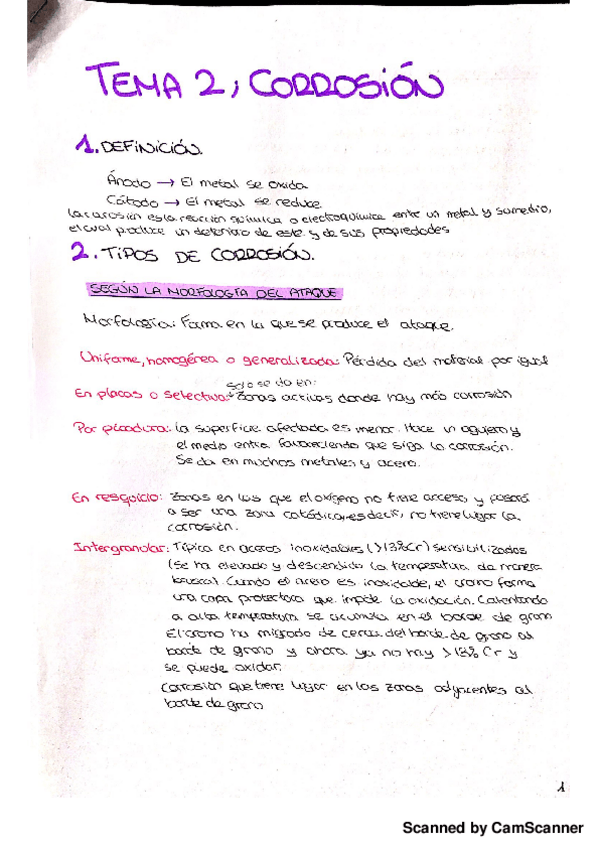 TEMA 2; CORROSIÓN
1. DEFINICIÓN.
Ánodo → El metal se oxida
Cátodo → El metal se reduce.
La corrosión es la reacción química o electroquímica entre un metal y su medio,
el cual produce un deterioro de este y de sus propiedades
2. TIPOS DE CORROSIÓN.
SEGÚN LA MORFOLOGÍA DEL ATAQUE
Morfología: Forma en la que se produce el ataque.
Uniforme, homogénea o generalizada: Pérdida del material por igual
solo se da en:
En placas o selectiva: Zonas activas donde hay más corrosión
Por picadura: La superficie afectada es menor. Hace un agujero y
el medio entra favoreciendo que siga la corrosión.
Se da en muchos metales y acero.
En resquicio: Zonas en las que el oxígeno no tiene acceso, y pasará
a ser una zona catódica, es decir, no tiene lugar la
corrosión.
Intergranular: Típica en aceros inoxidables (>13%Cr) sensibilizados
(se ha elevado y descendido la temperatura de manera
brusca). Cuando el acero es inoxidable, el cromo forma
una capa protectora que impide la oxidación. Calentando
a alta temperatura se acumula en el borde de grano
El cromo ha migrado de cerca del borde de grano al
borde de grano y ahora ya no hay >13% Cr y
se puede oxidar.
Corrosión que tiene lugar en las zonas adyacentes al
borde de grano
1
Scanned by CamScanner